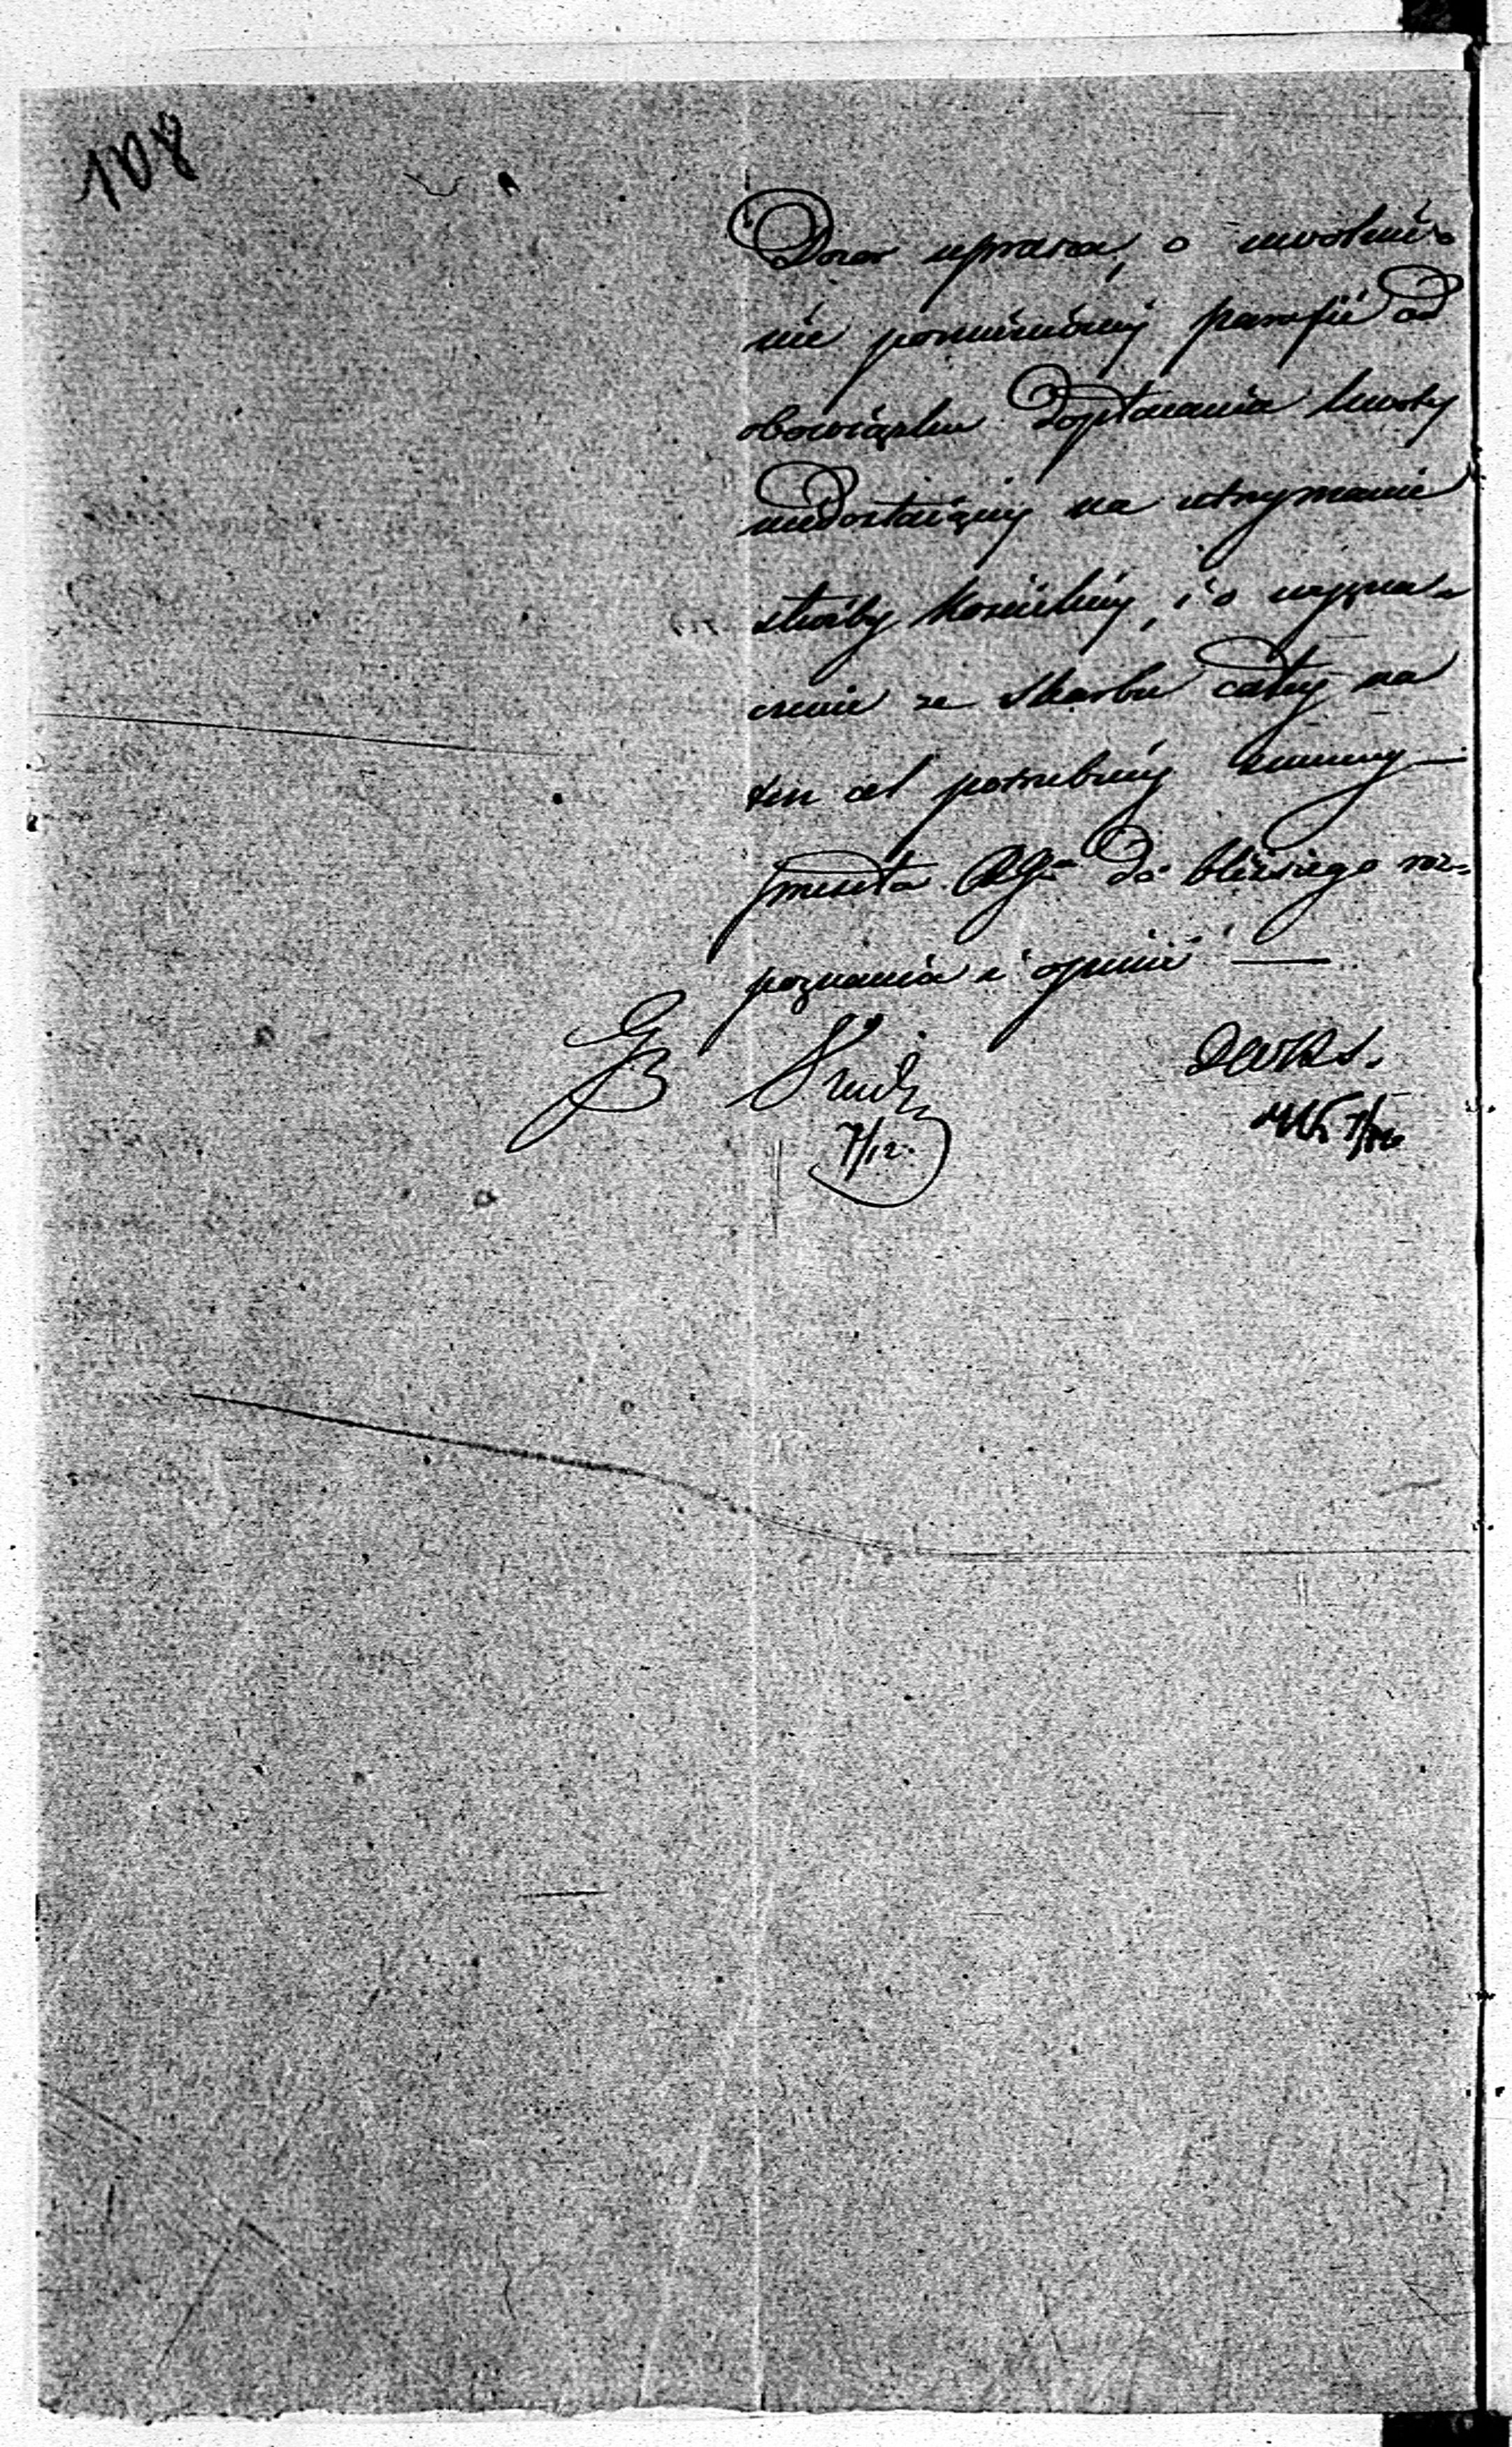 108
Dozor uprasza, o uwolnie-
nie pomienionéj parafii od
obowiązku dopłacania kwoty
niedostaiącéj na utrzymanie
służby kościelnéj, i o wyzna-
czenie ze skarbu całéj na
ten cel potrzebnéj summy —
przesyła do bliższego roz-
poznania i opinii —
7/12.